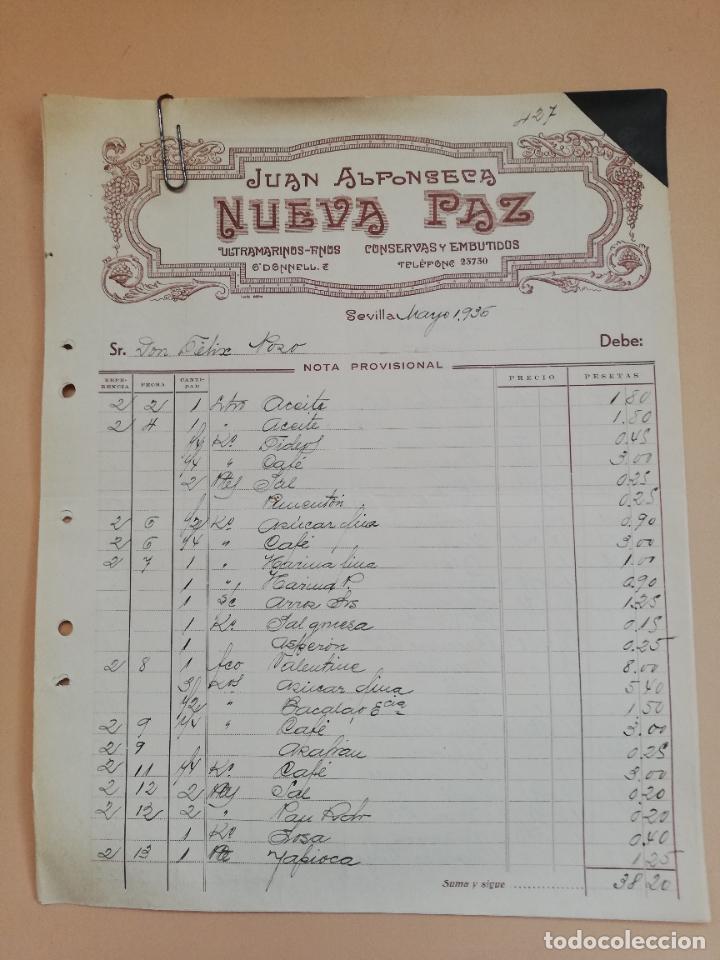 427
JUAN ALFONSECA
NUEVA PAZ
ULTRAMARINOS-FINOS CONSERVAS Y EMBUTIDOS
O'DONNELL. 2 TELÉFONO 23730
Sevilla Mayo 1.936
Sr. Don Félix Pozo Debe:
NOTA PROVISIONAL
REFERENCIA FECHA CANTIDAD PRECIO PESETAS
2 2 1 Aceite 1.80
2 4 1 " Aceite 1.80
Ko Fideos 0.45
1/4 " Café 3.00
2 Sal 0.25
Pimentón 0.25
2 6 1/2 Ko Azúcar fina 0.90
2 6 1/4 " Café 3.00
2 7 1 " Harina fina 1.00
1 " Harina P. 0.90
1 Arroz 1.25
1 Ko Sal gruesa 0.15
1 Asperón 0.25
2 8 1 Valentine 8.00
3 Kos Azúcar fina 5.40
1/2 " Bacalao 1.50
2 9 1/4 " Café 3.00
2 9 Azafrán 0.25
2 11 1/4 Ko Café 3.00
2 12 2 Sal 0.20
2 12 2 " 0.20
1 Ko Sosa 0.40
2 13 1 Tapioca 1.25
Suma y sigue 38 20
todocoleccion.net